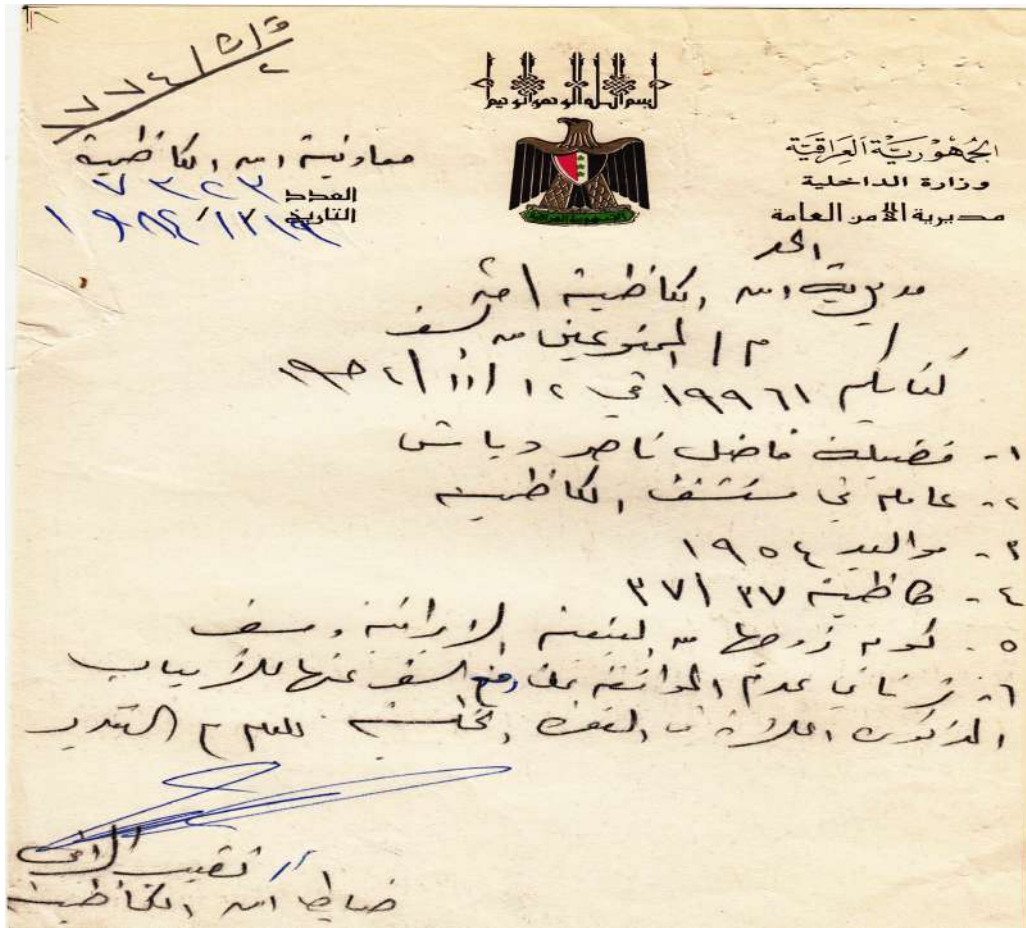 بسم الله الرحمن الرحيم
الجمهورية العراقية
وزارة الداخلية
مديرية الأمن العامة
معاونية امن الكاظمية
العدد ٧٣٢٣
التاريخ
مديرية امن الكاظمية
م/ الممنوعين من السفر
كتابكم ١٩٩٦١ في ١٢/١١/
١- فضيلة فاضل ناصر دباش
٢- عامله في مستشفى الكاظمية
٣- مواليد ١٩٥٤
٤- كاظمية ٣٧/٣٧
٥- كون زوجها من التبعية الايرانية ومسفر
٦- نرتأي عدم الموافقة على رفع السفر عنها للأسباب
المذكورة اعلاه في الفقرة الخامسة للعلم مع التقدير
نقيب الامن
ضابط امن الكاظمية